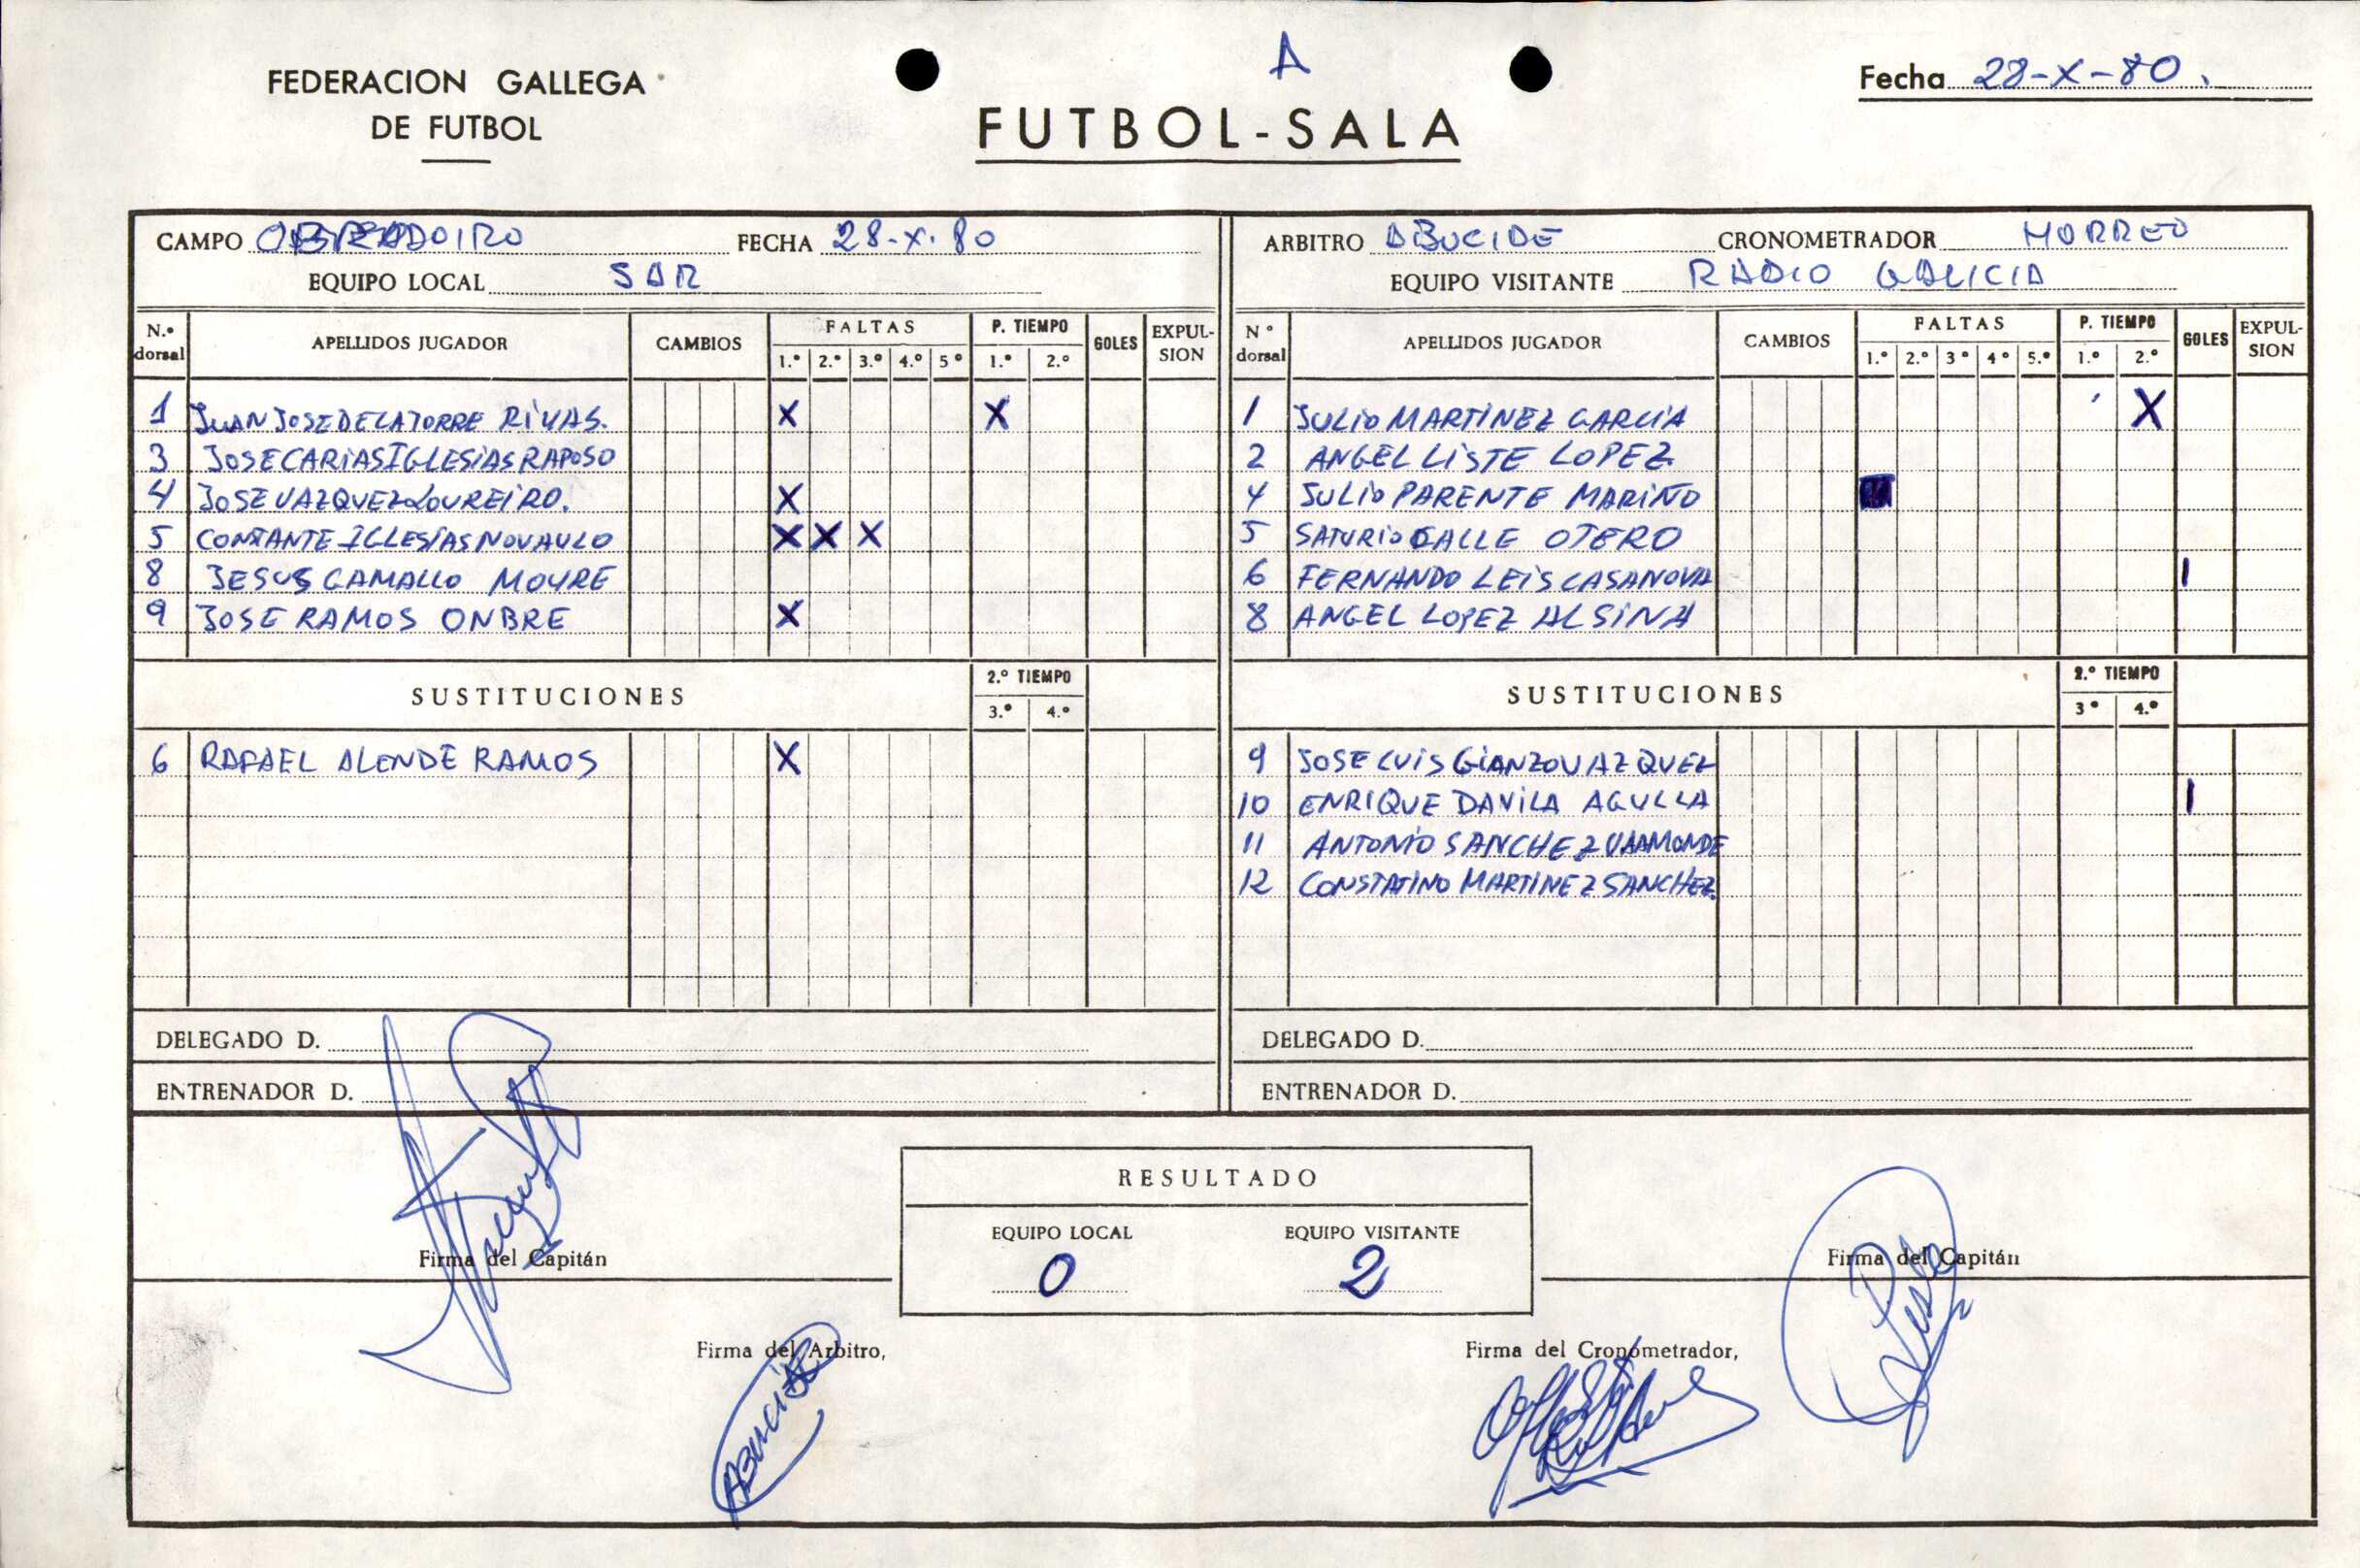 A
Fecha 28-X-80.
FEDERACION GALLEGA
DE FUTBOL
FUTBOL-SALA
CAMPO OBRADOIRO FECHA 28-X-80
EQUIPO LOCAL SAR
N.º dorsal APELLIDOS JUGADOR CAMBIOS FALTAS P. TIEMPO GOLES EXPULSION
1.º 2.º 3.º 4.º 5º 1.º 2.º
1 JUAN JOSE DE LA TORRE RIVAS. X X
3 JOSE CARIAS IGLESIAS RAPOSO
4 JOSE VAZQUEZ LOUREIRO. X
5 CONSTANTE IGLESIAS X X X
8 JESUS GAMALLO MOURE
9 JOSE RAMOS ONBRE X
SUSTITUCIONES 2.º TIEMPO
3.º 4.º
6 RAFAEL ALENDE RAMOS X
DELEGADO D.
ENTRENADOR D.
ARBITRO ABUCIDE CRONOMETRADOR HORREO
EQUIPO VISITANTE RADIO GALICIA
Nº dorsal APELLIDOS JUGADOR CAMBIOS FALTAS P. TIEMPO GOLES EXPULSION
1.º 2.º 3º 4º 5.º 1.º 2.º
1 JULIO MARTINEZ GARCIA X
2 ANGEL LISTE LOPEZ
4 JULIO PARENTE MARIÑO
5 SATURIO CALLE OTERO
6 FERNANDO LEIS CASANOVA 1
8 ANGEL LOPEZ ALSINA
SUSTITUCIONES 2.º TIEMPO
3º 4.º
9 JOSE LUIS GIANZO VAZQUEZ
10 ENRIQUE DAVILA AGULLA 1
11 ANTONIO SANCHEZ VAAMONDE
12 CONSTATINO MARTINEZ SANCHEZ
DELEGADO D.
ENTRENADOR D.
RESULTADO
EQUIPO LOCAL EQUIPO VISITANTE
0 2
Firma del Capitán
Firma del Capitán
Firma del Arbitro,
ABUCIDE
Firma del Cronómetrador,